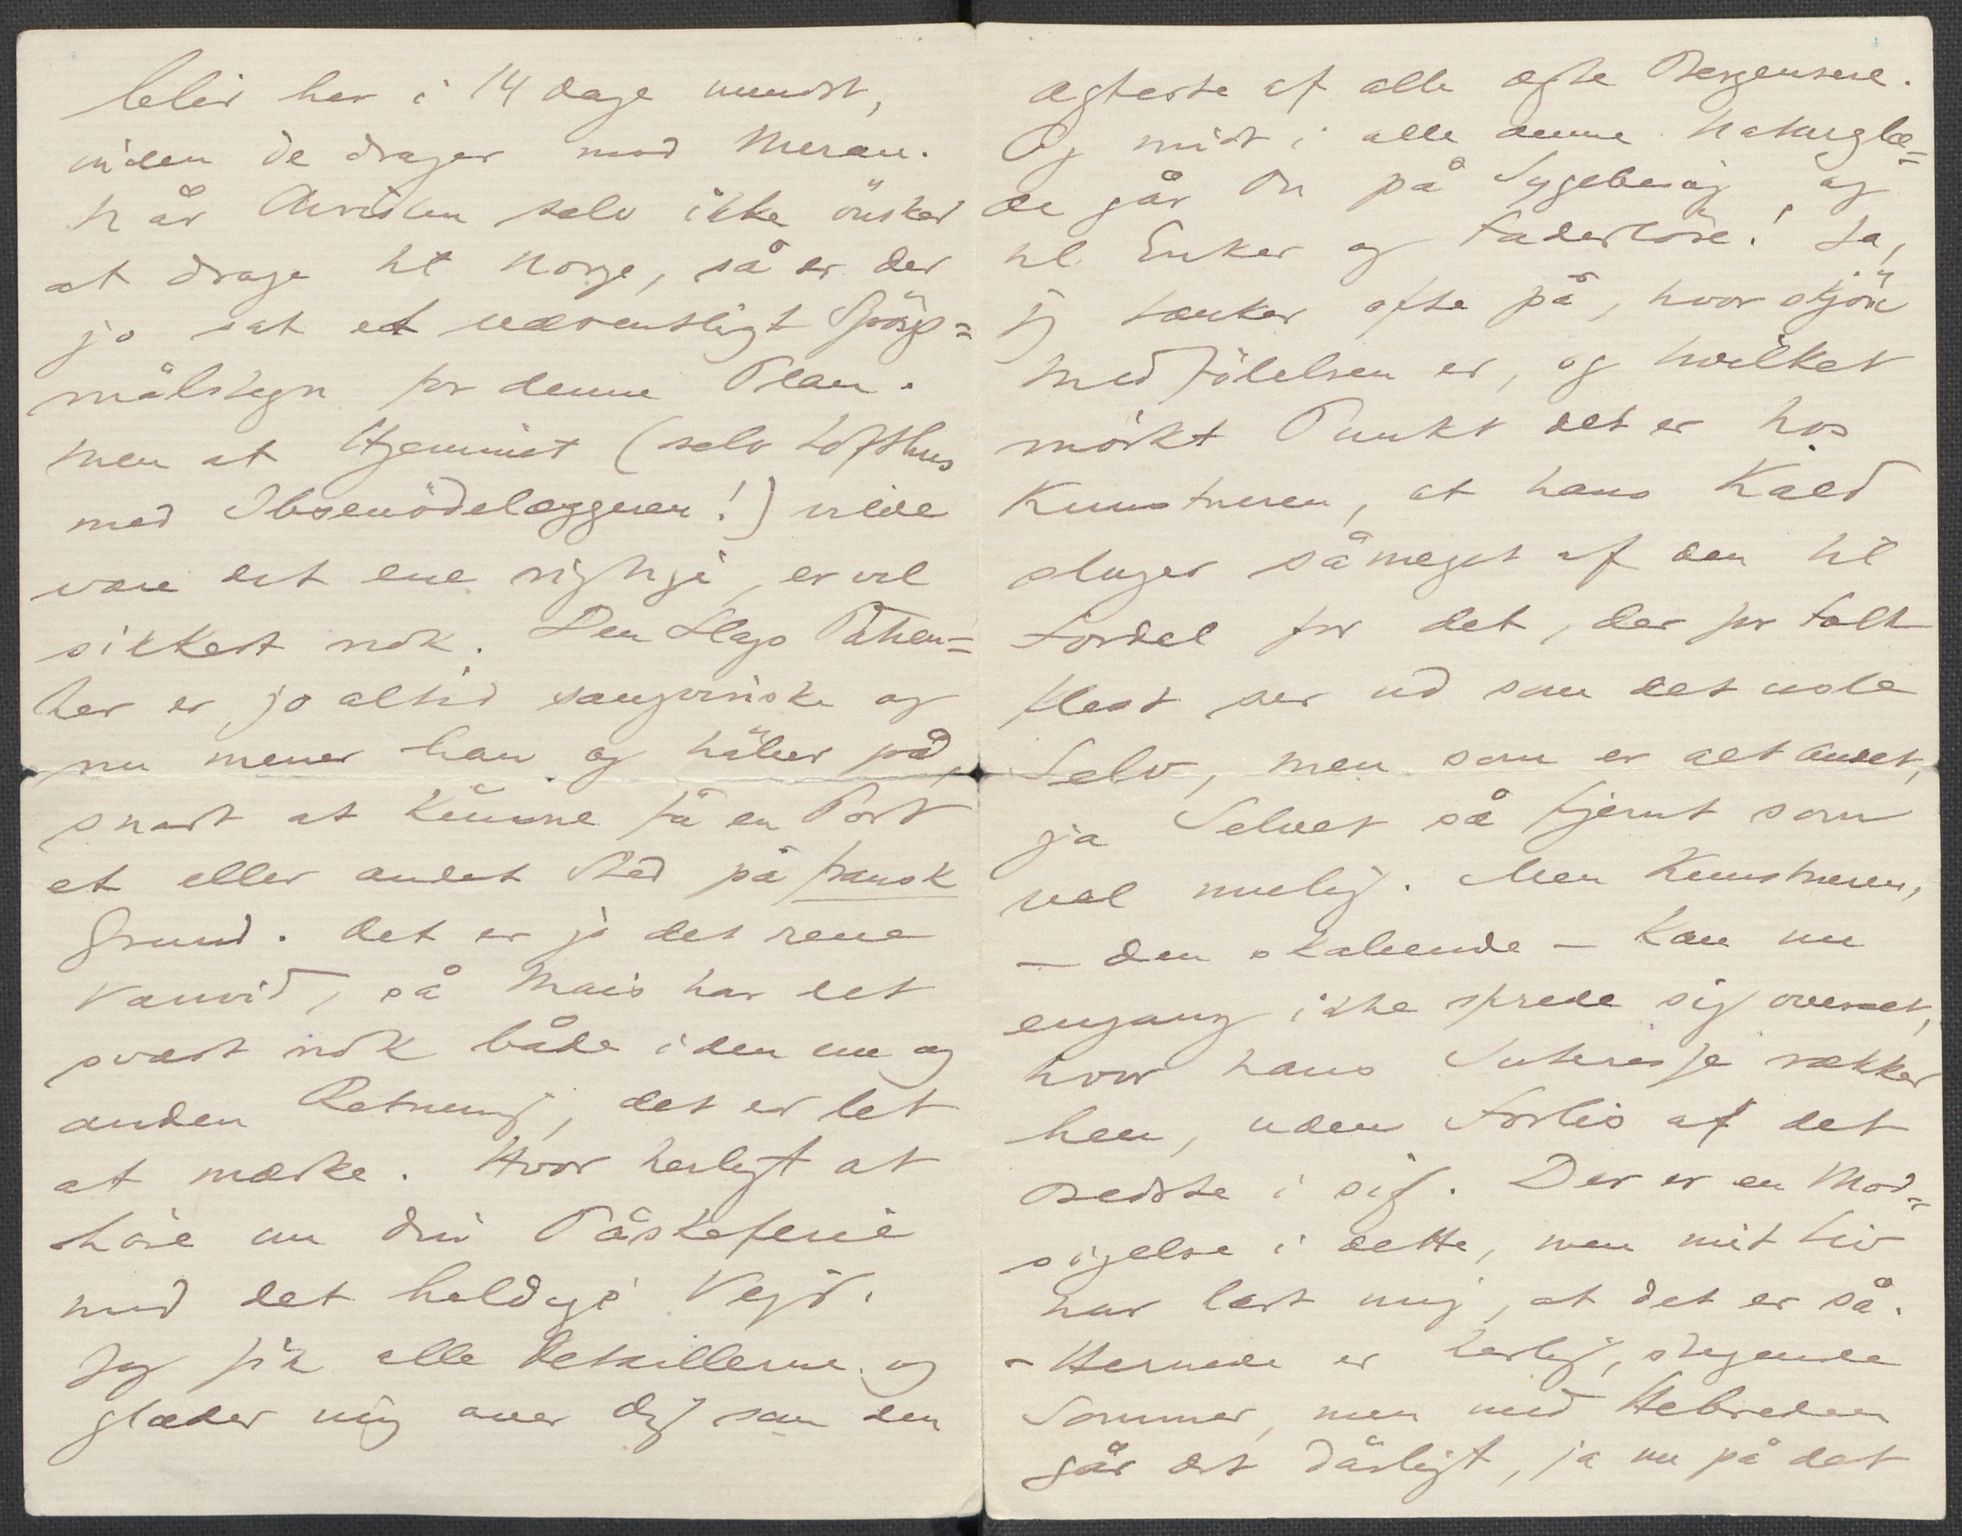 blir her i 14 dage mindst,
inden de drager mod Meran.
Når Christen selv ikke önsker
at drage til Norge, så er der
jo sat et uæventligt Spörgs=
målstegn for denne Plan.
Men at Hjemmet (selv Lofthus
med Ibsenödelæggelsen!) vilde
være det ene rigtige, er vel
sikkert nok. Den Slags Patien=
ter er jo altid sangvinske og
nu mener han og håber på,
snart at kunne få en Post
et eller andet Sted på fransk
Grund. Det er jo det rene
Vanvid, så Mais har det
svært nok både i den ene og
anden Retning, det er let
at mærke. Hvor herligt at
höre om din Påskeferie
med det heldige Vejr.
Jeg fik alle Detaillerne og
glæder mig over Dig som den
ægteste af alle ægte Bergensere.
Og midt i alle denne Naturglæ=
de går Du på Sygebesög og
til Enker og Faderlöse! Ja,
jeg tænker ofte på, hvor skjön
Medfölelsen er, og hvilket
mörkt Punkt det er hos
Kunstneren, at hans Kald
sluger såmeget af den til
Fordel for det, der for Folk
flest ser ud som det usle
Selv, men som er alt andet,
ja Selvet så fjernt som
vel mulig. Men Kunstneren,
– den skabende – kan nu
engang ikke sprede sig overalt,
hvor hans Interesse rækker
hen, uden Forlis af det
bedste i sig. Der er en Mod=
sigelse i dette, men mit Liv
har lært mig, at det er så.
– Hernede er herlig, stegende
Sommer, men med Helbreden
går det dårligt, ja nu på det